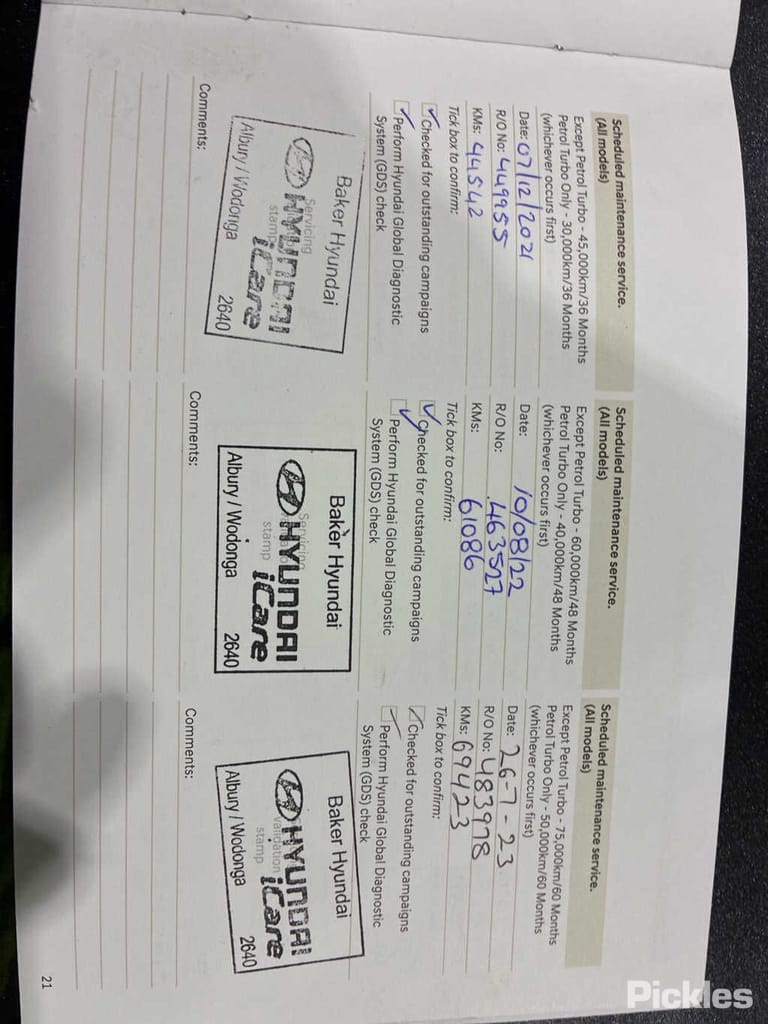 Scheduled maintenance service.
(All models)
Except Petrol Turbo - 45,000km/36 Months
Petrol Turbo Only - 30,000km/36 Months
(whichever occurs first)
Date: 07/12/2021
R/O No: 449955
KMs: 44542
Tick box to confirm:
Checked for outstanding campaigns
Perform Hyundai Global Diagnostic
System (GDS) check
Baker Hyundai
Servicing
HYUNDAI
stamp
iCare
Albury / Wodonga 2640
Comments:
Scheduled maintenance service.
(All models)
Except Petrol Turbo - 60,000km/48 Months
Petrol Turbo Only - 40,000km/48 Months
(whichever occurs first)
Date: 10/08/22
R/O No: 463527
KMs: 61086
Tick box to confirm:
Checked for outstanding campaigns
Perform Hyundai Global Diagnostic
System (GDS) check
Baker Hyundai
Servicing
HYUNDAI
stamp
iCare
Albury / Wodonga 2640
Comments:
Scheduled maintenance service.
(All models)
Except Petrol Turbo - 75,000km/60 Months
Petrol Turbo Only - 50,000km/60 Months
(whichever occurs first)
Date: 26-7-23
R/O No: 483978
KMs: 69423
Tick box to confirm:
Checked for outstanding campaigns
Perform Hyundai Global Diagnostic
System (GDS) check
Baker Hyundai
HYUNDAI
validation
stamp
iCare
Albury / Wodonga 2640
Comments:
21
Pickles